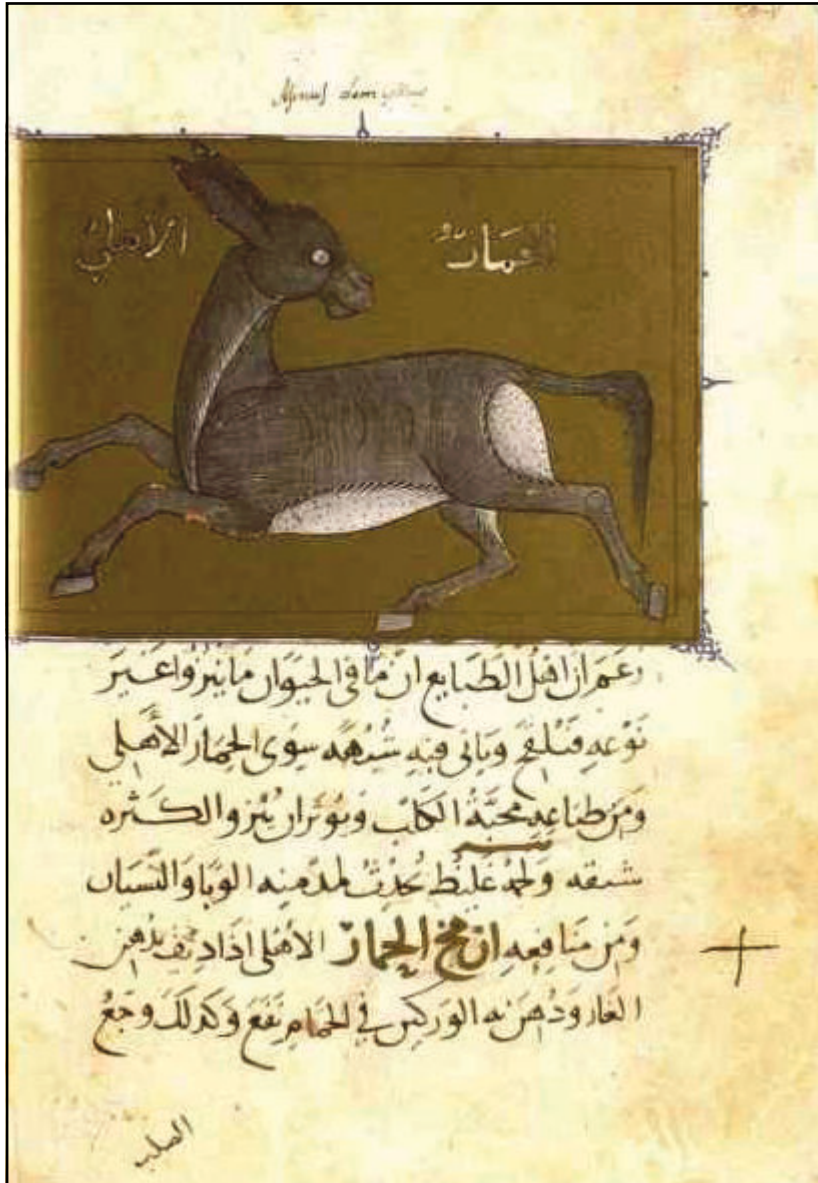 Asinus domesticus
الحمار الأهلي
زعم ان اهل الطبايع ان ما في الحيوان ما ينزوا على غير
نَوْعِهِ فتلقح وياتي فيه شبهه سوى الحِمَار الأهلي
ومن طباعِهِ محبَّةُ الكلب ويوثر ان ينزو الكثره
شبقه ولحمه غليظ يُحدِثُ لمدمنِهِ الوبا والنسيان
ومن منافعِهِ ان مخ الحِمار الأهلي اذا ديف بدهن
الغار ودُهن به الوركين في الحمام نفع وكذلك وجعُ
الصلب